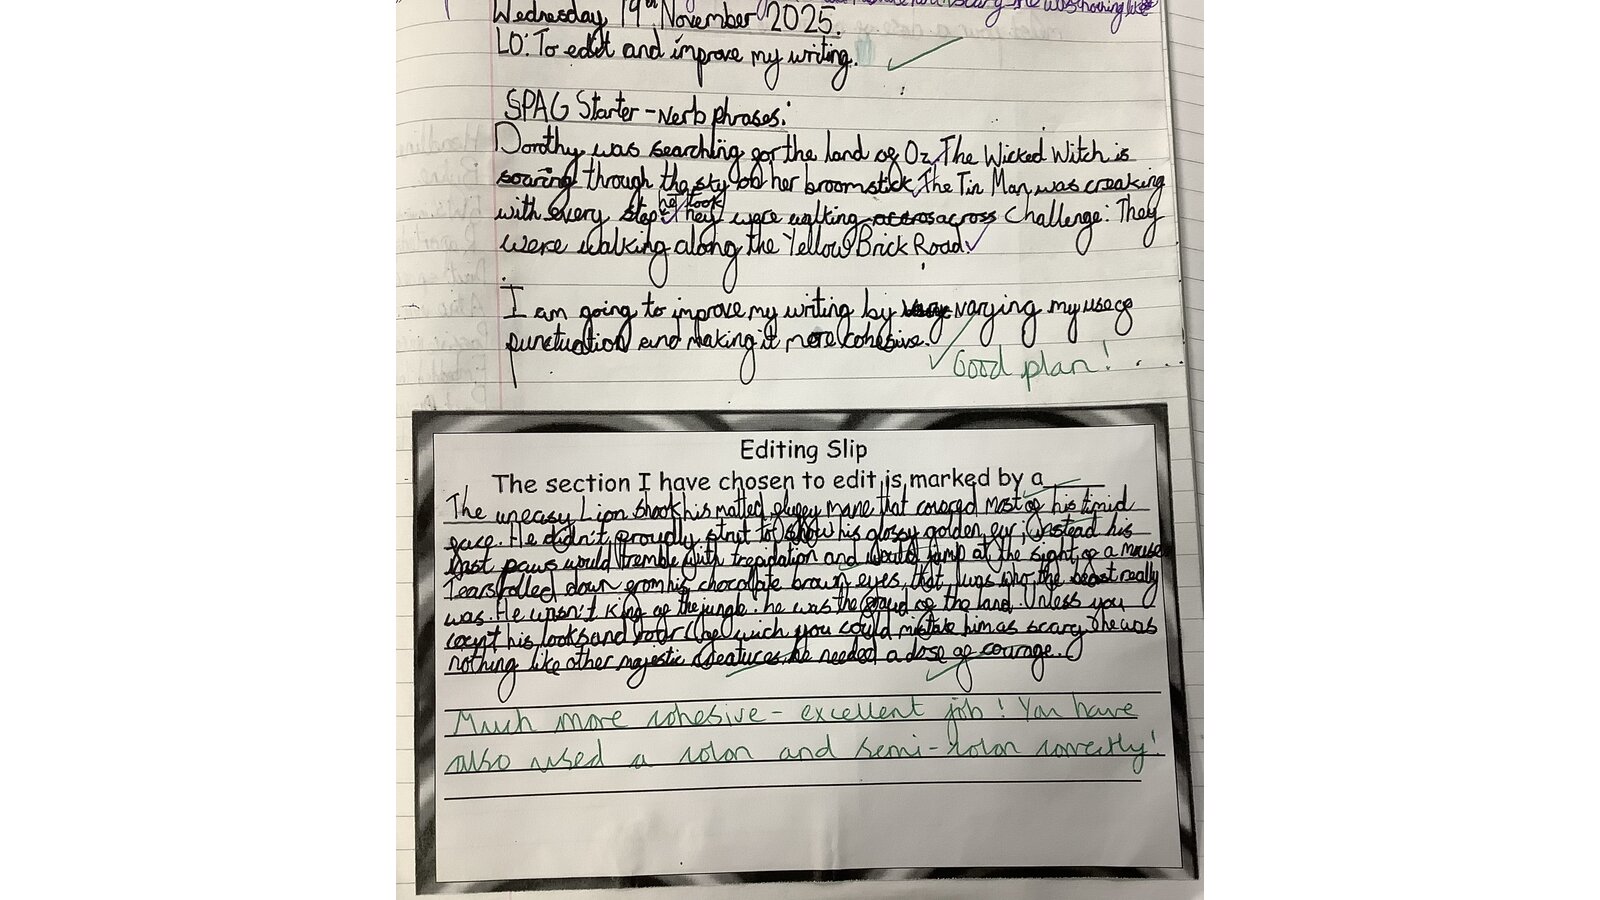 scary he was nothing like
Wednesday 19th November 2025.
LO: To edit and improve my writing.
SPAG Starter - Verb phrases:
Dorothy was searching for the land of Oz. The Wicked Witch is
soaring through the sky on her broomstick. The Tin Man was creaking
he took
with every step. They were walking across Challenge: They
were walking along the Yellow Brick Road.
I am going to improve my writing by varying my use of
punctuation and making it more cohesive.
Good plan!
Editing Slip
The section I have chosen to edit is marked by a
The uneasy Lion shook his matted, mane that covered most of his timid
face. He didn't proudly strut to show his glossy golden fur; instead his
vast paws would tremble with trepidation and would jump at the sight of a mouse
Tears rolled down from his chocolate brown eyes, that was who the beast really
was. He wasn't king of the jungle: he was the of the land. Unless you
count his looks and roar (of wich you could mistake him as scary) he was
nothing like other majestic creatures, he needed a dose of courage.
Much more cohesive - excellent job! You have
also used a colon and semi-colon correctly!